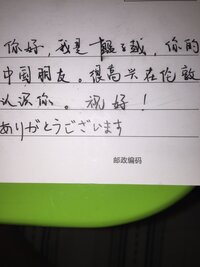 你好，我是韫越，你的
中国朋友。很高兴在伦敦
认识你。祝好！
ありがとうございます
邮政编码